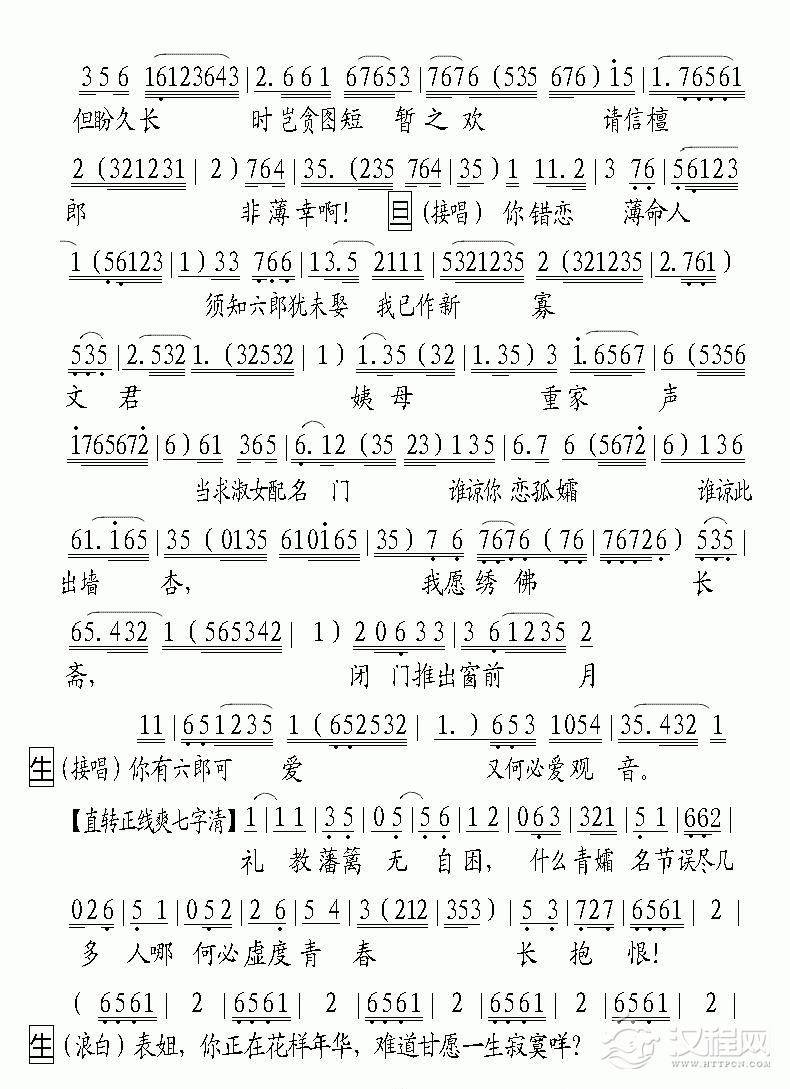 3 5 6 16123643 | 2. 6 6 1 67653 | 7676 (535 676) i5 | 1.76561
但盼久长 时岂贪图短 暂之欢 请信檀
2 (321231 | 2) 764 | 35. (235 764 | 35) 1 11.2 | 3 76 | 56123
郎 非薄幸啊! 旦 (接唱) 你错恋 薄命人
1 (56123 | 1) 33 766 | 13.5 2111 | 5321235 2 (321235 | 2.761)
须知六郎犹未娶 我已作新 寡
535 | 2.532 1. (32532 | 1) 1.35 (32 | 1.35) 3 i.6567 | 6 (5356
文 君 姨 母 重家 声
i765672 | 6) 61 365 | 6.12 (35 23) 135 | 6.7 6 (5672 | 6) 136
当求淑女配名 门 谁谅你 恋孤孀 谁谅此
61.i65 | 35 (0135 610i65 | 35) 7 6 7676 (76 | 76726) 535 |
出墙 杏, 我愿绣 佛 长
65.432 1 (565342 | 1) 20633 | 3 61235 2
斋, 闭 门推出窗前 月
11 | 651235 1 (652532 | 1.) 653 1054 | 35.432 1
生 (接唱) 你有六郎可 爱 又何必爱观 音。
【直转正线爽七字清】 1 | 1 1 | 3 5 | 0 5 | 5 6 | 1 2 | 063 | 321 | 5 1 | 662 |
礼 教藩篱 无 自困, 什么青孀 名节误尽几
026 | 5 1 | 052 | 2 6 | 5 4 | 3 (212 | 353) | 5 3 | 727 | 6561 | 2 |
多 人哪 何必虚度青 春 长 抱 恨!
( 6561 | 2 | 6561 | 2 | 6561 | 2 | 6561 | 2 | 6561 | 2 | 6561 |
生 (浪白) 表姐, 你正在花样年华, 难道甘愿一生寂寞咩?
汉程网
WWW.HTTPCN.COM